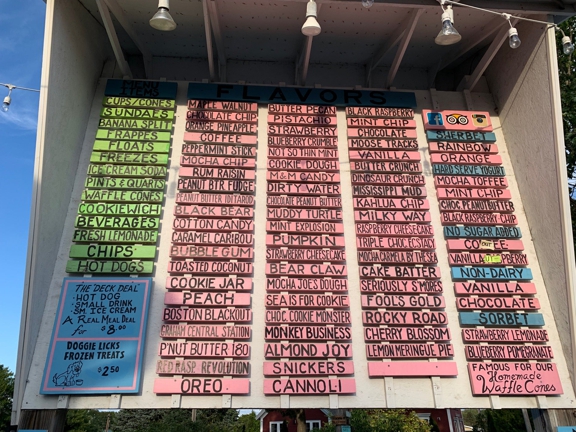 MENU
FLAVORS
CUPS/CONES
SUNDAES
BANANA SPLIT
FRAPPES
FLOATS
FREEZES
ICE CREAM SODA
PINTS & QUARTS
WAFFLE CONES
COOKIEWICH
BEVERAGES
FRESH LEMONADE
CHIPS
HOT DOGS
THE DECK DEAL
-HOT DOG
-SMALL DRINK
-SM. ICE CREAM
A REAL MEAL DEAL
for $8.00
DOGGIE LICKS
FROZEN TREATS
$2.50
MAPLE WALNUT
CHOCOLATE CHIP
ORANGE PINEAPPLE
COFFEE
PEPPERMINT STICK
MOCHA CHIP
RUM RAISIN
PEANUT BTR. FUDGE
BLACK BEAR
COTTON CANDY
CARAMEL CARIBOU
BUBBLE GUM
TOASTED COCONUT
COOKIE JAR
PEACH
BOSTON BLACKOUT
GRAHAM CENTRAL STATION
P'NUT BUTTER 180
RED RASP. REVOLUTION
OREO
BUTTER PECAN
PISTACHIO
STRAWBERRY
BLUEBERRY CRUMBLE
NOT SO THIN MINT
COOKIE DOUGH
M&M CANDY
DIRTY WATER
CHOCOLATE PEANUT BUTTER
MUDDY TURTLE
MINT EXPLOSION
PUMPKIN
STRAWBERRY CHEESECAKE
BEAR CLAW
MOCHA JOE'S DOUGH
SEA IS FOR COOKIE
CHOC. COOKIE MONSTER
MONKEY BUSINESS
ALMOND JOY
SNICKERS
CANNOLI
BLACK RASPBERRY
MINT CHIP
CHOCOLATE
MOOSE TRACKS
VANILLA
BUTTER CRUNCH
DINOSAUR CRUNCH
MISSISSIPPI MUD
KAHLUA CHIP
MILKY WAY
RASPBERRY CHEESECAKE
TRIPLE CHOC ECSTASY
CAKE BATTER
SERIOUSLY S'MORES
FOOL'S GOLD
ROCKY ROAD
CHERRY BLOSSOM
LEMON MERINGUE PIE
SHERBET
RAINBOW
ORANGE
HARD SERVE YOGURT
MOCHA TOFFEE
MINT CHIP
CHOC PEANUT BUTTER
BLACK RASPBERRY CHIP
NO SUGAR ADDED
COFFEE
OUT
NON-DAIRY
VANILLA
CHOCOLATE
SORBET
STRAWBERRY LEMONADE
BLUEBERRY POMEGRANATE
FAMOUS FOR OUR
Homemade
Waffle Cones